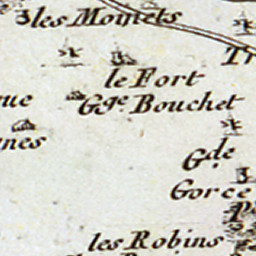 les Momets
Tr
le Fort
Gge. Bouchet
que
nes
G.de
Gorce
P
les Robins